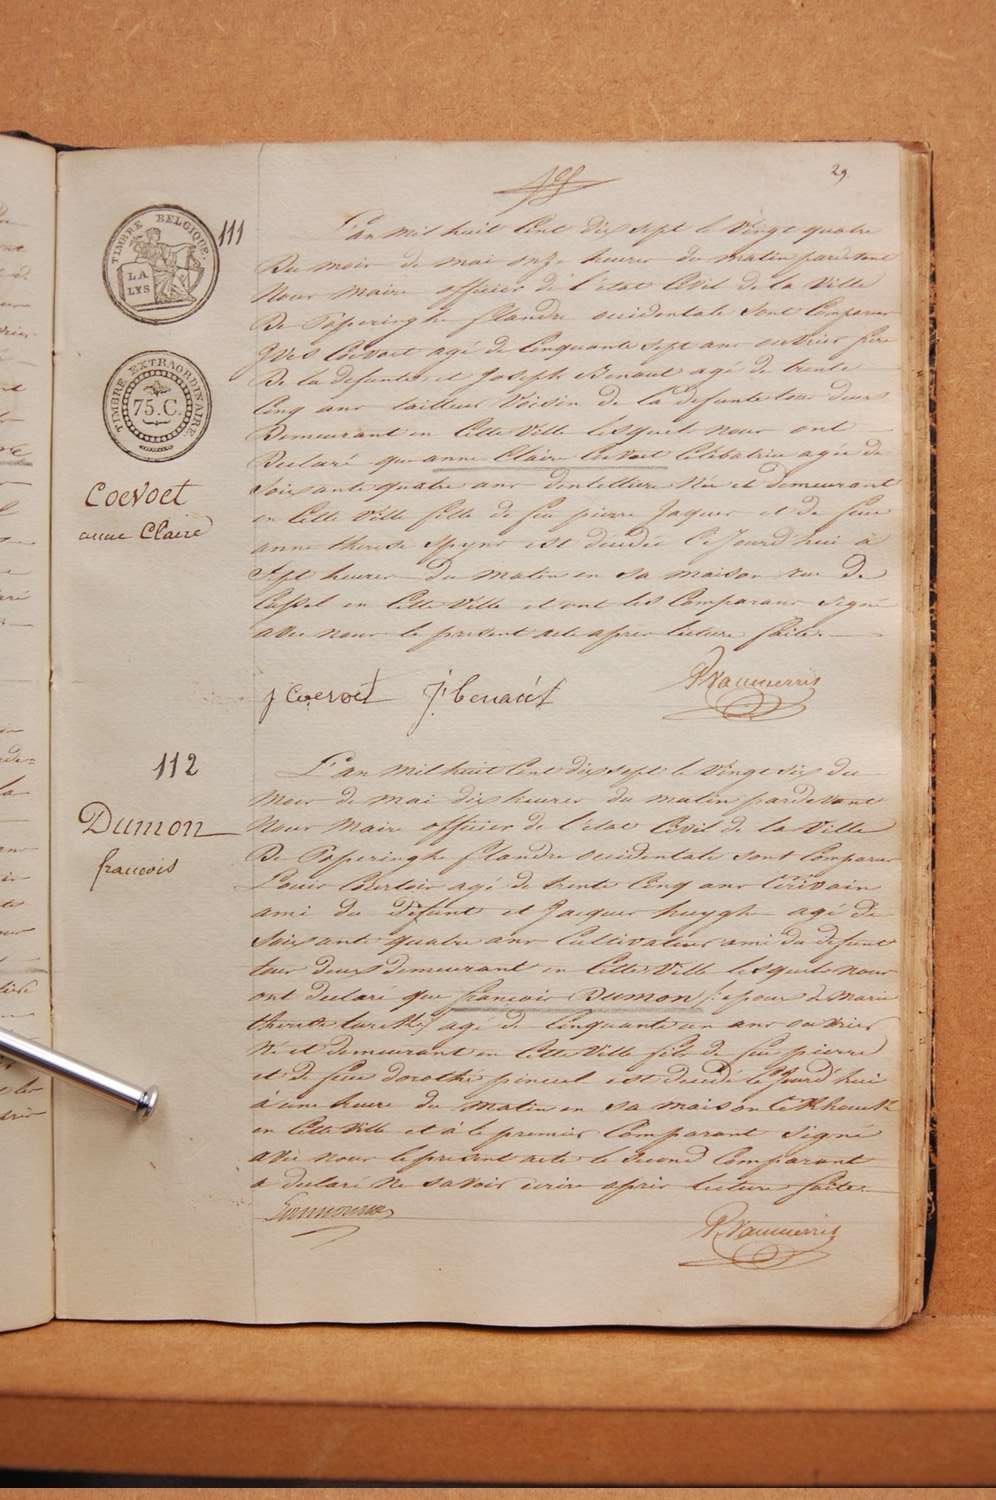 29
TIMBRE BELGIQUE.
LA
LYS
111
L'an mil huit Cent dix sept le Vingt quatre
Du mois de mai onze heures du matin pardevant
Nous maire officier de l'etat Civil de la Ville
De Poperinghe flandre occidentale sont Comparus
Yves Coevoet agé de Cinquante sept ans ouvrier frere
De la defunte et Joseph Benaut agé de trente
Cinq ans tailleur Voisin de la defunte tous deux
Demeurant en Cette Ville lesquels nous ont
Declaré que anne Claire Coevoet Celibatrice agée de
Soixante quatre ans dentelliere Née et demeurant
en Cette Ville fille de feu pierre Jaques et de feue
anne therese Spyns est decedée Ce Jourd'hui à
Sept heures du matin en sa maison rue De
Cassel en Cette Ville et ont les Comparans signé
avec nous le present acte apres lecture faite.
TIMBRE EXTRAORDINAIRE
75. C.
Coevoet
anne Claire
j Coevoet J: benaut
112
L'an mil huit Cent dix sept le Vingt six du
mois de mai dix heures du matin pardevant
Nous maire officier de l'etat Civil de la Ville
De Poperinghe flandre occidentale sont Comparus
Louis Courtois agé de trente Cinq ans Ecrivain
ami du Defunt et Jacques huyghe agé de
Soixante quatre ans Cultivateur ami du defunt
tous deux demeurant en Cette Ville lesquels nous
ont declaré que françois Dumon (epoux de Marie
therese agé de Cinquante un ans ouvrier
Né et demeurant en Cette Ville fils de feu pierre
et de feue dorothé pinceel est decedé Ce Jourd'hui
à une heure du matin en sa maison
en Cette Ville et à le premier Comparant signé
avec nous le present acte le second Comparant
a declaré ne savoir écrire apres lecture faite.
Dumon
francois